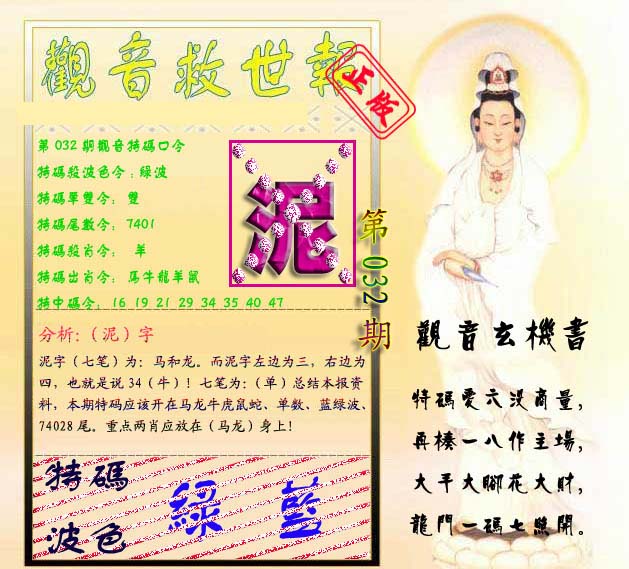 觀音救世報
正版
第032期觀音特碼口令
特碼殺波色令:綠波
特碼單雙令: 雙
特碼尾數令: 7401
特碼殺肖令: 羊
特碼出肖令: 馬牛龍羊鼠
特中碼令: 16 19 21 29 34 35 40 47
泥
第032期
分析:(泥)字
泥字(七笔)为: 马和龙。而泥字左边为三, 右边为
四, 也就是说34(牛)! 七笔为:(单)总结本报资
料, 本期特码应该开在马龙牛虎鼠蛇、单数、蓝绿波、
74028尾。重点两肖应放在(马龙)身上!
特碼
波色
綠 藍
觀音玄機書
特碼愛六沒商量,
再楱一八作主場,
大平大腳花大財,
龍門一碼七點開。